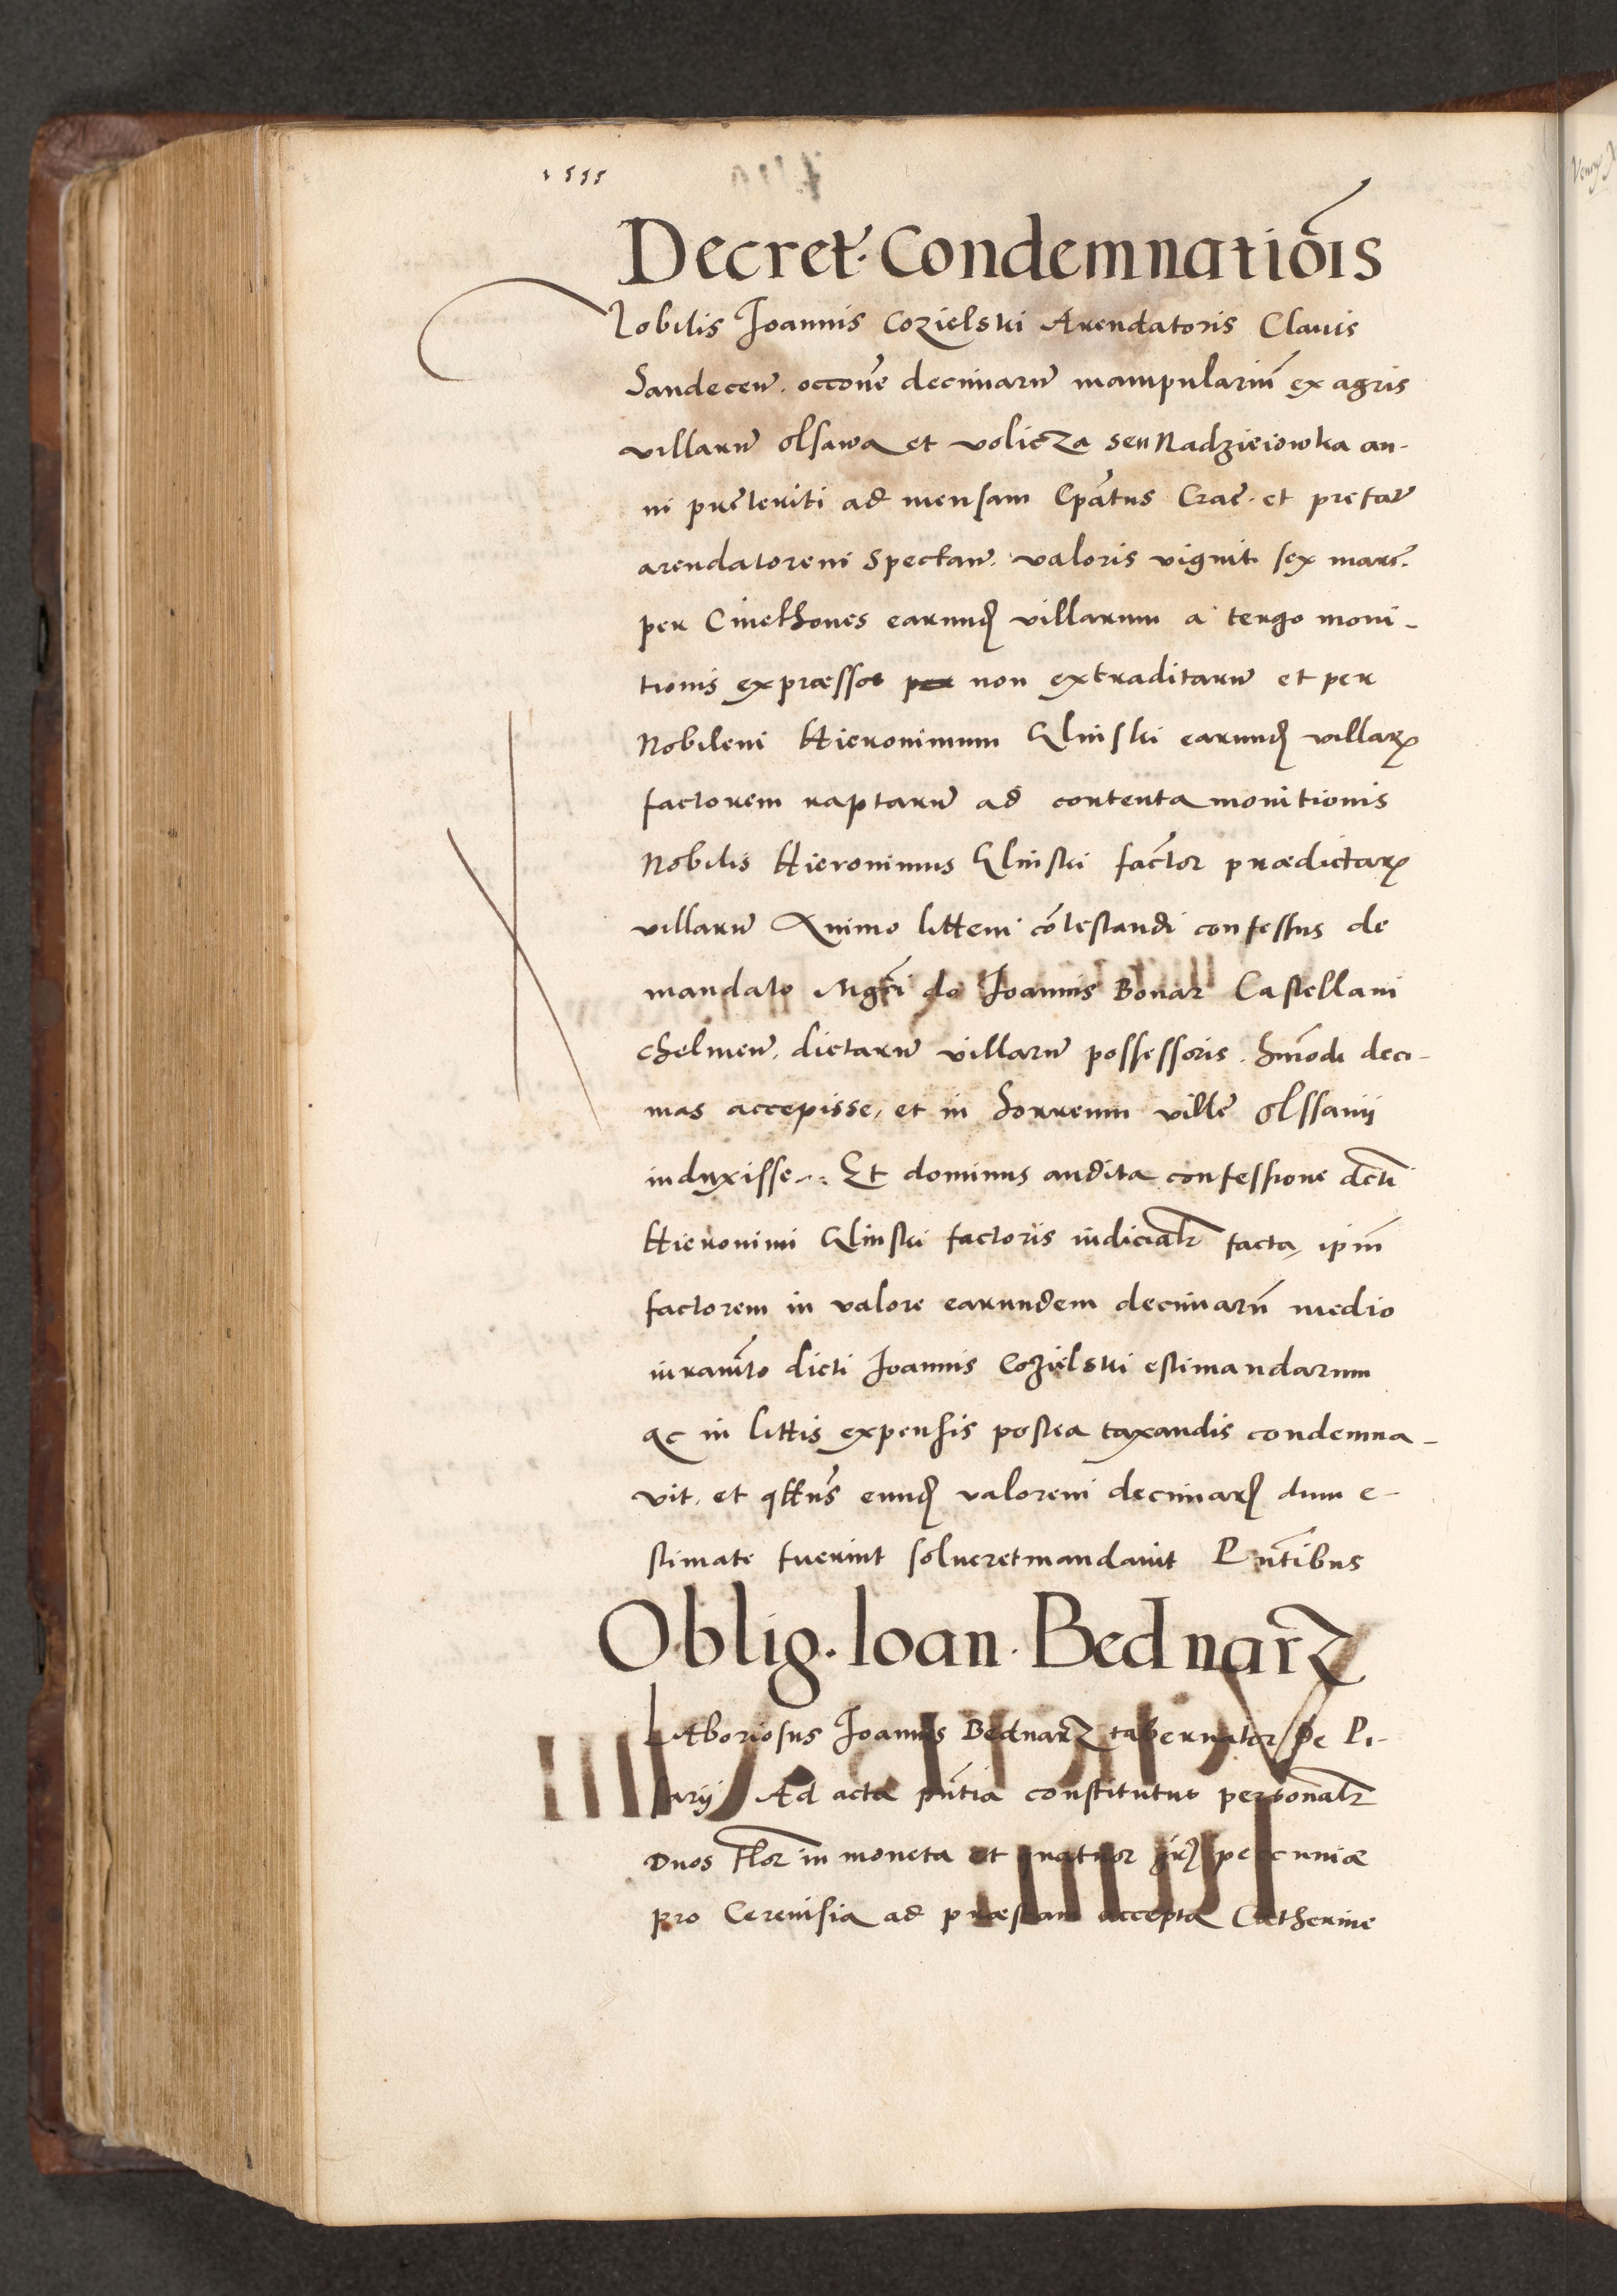 1555
Decret. Condemnatiõis
Nobilis Joannis Cozielski Arendatoris Clauis
Sandecen̄. occōne decimarū manipulariū ex agris
villarū Olsawa et volicza seu Nadzieiowka an-
ni preteriti ad mensam Epātus Crac̄. et prefat̄
arendatorem Spectan̄. valoris viginti sex marc̄.
per Cmethones earund̄ villarum a tergo moni-
tionis expræssos non extraditarū et per
Nobilem Hieronimum Glinski earund̄ villarꝝ
factorem raptarū ad contenta monitionis
Nobilis Hieronimus Glinski factor prædictarꝝ
villarū Animo littem cōtestandi confessus de
mandato Mgc̄i dō Joannis Bonar Castellani
chelmen̄. dictarū villarū possessoris. hmōdi deci-
mas accepisse, et in horreum ville Olssanij
induxisse. Et dominus audita confessione dcti
Hieronimi Glinski factoris iudicialr̄ facta, ipm̄
factorem in valore earundem decimarū medio
iuramto dicti Joannis Cozielski estimandarum
ac in littis expensis postea taxandis condemna-
vit. et qtt̄ns eund̄ valorem decimarꝝ dum e-
stimate fuerint solueret mandauit Pn̄tibus
Oblig. Ioan. Bednarz
LAboriosus Joannes Bednarz tabernator De
Ad acta pn̄tia constitutus personalr̄
Duos flor̄ in moneta et quatuor gr̄ pecuniæ
pro Cereuisia ad præstam accepta Catherine